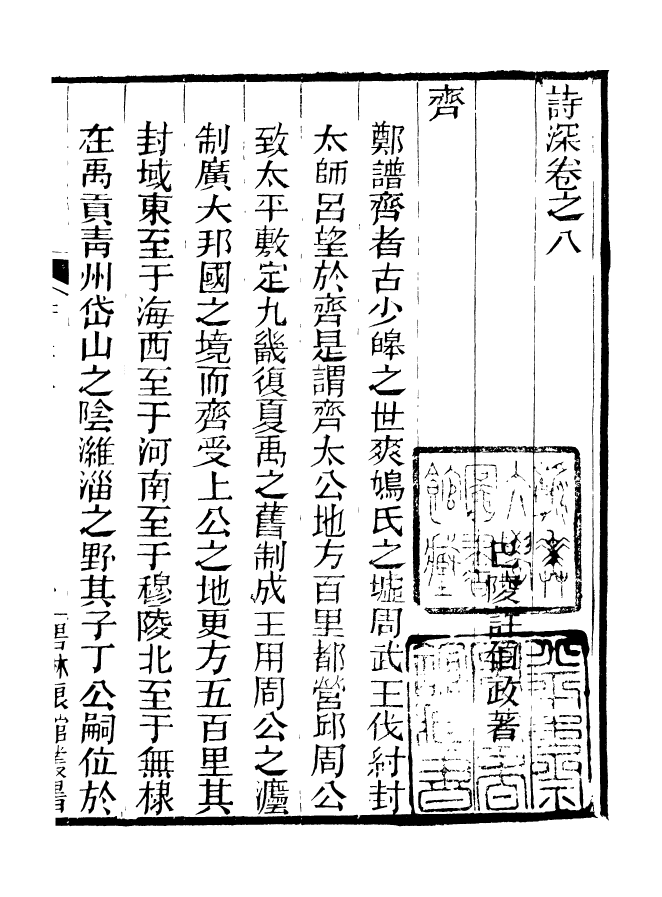 詩深卷之八
巴陵許伯政著
齊
鄭譜齊者古少皡之世爽鳩氏之墟周武王伐紂封
太師呂望於齊是謂齊太公地方百里都營邱周公
致太平敷定九畿復夏禹之舊制成王用周公之灋
制廣大邦國之境而齊受上公之地更方五百里其
封域東至于海西至于河南至于穆陵北至于無棣
在禹貢靑州岱山之陰濰淄之野其子丁公嗣位於